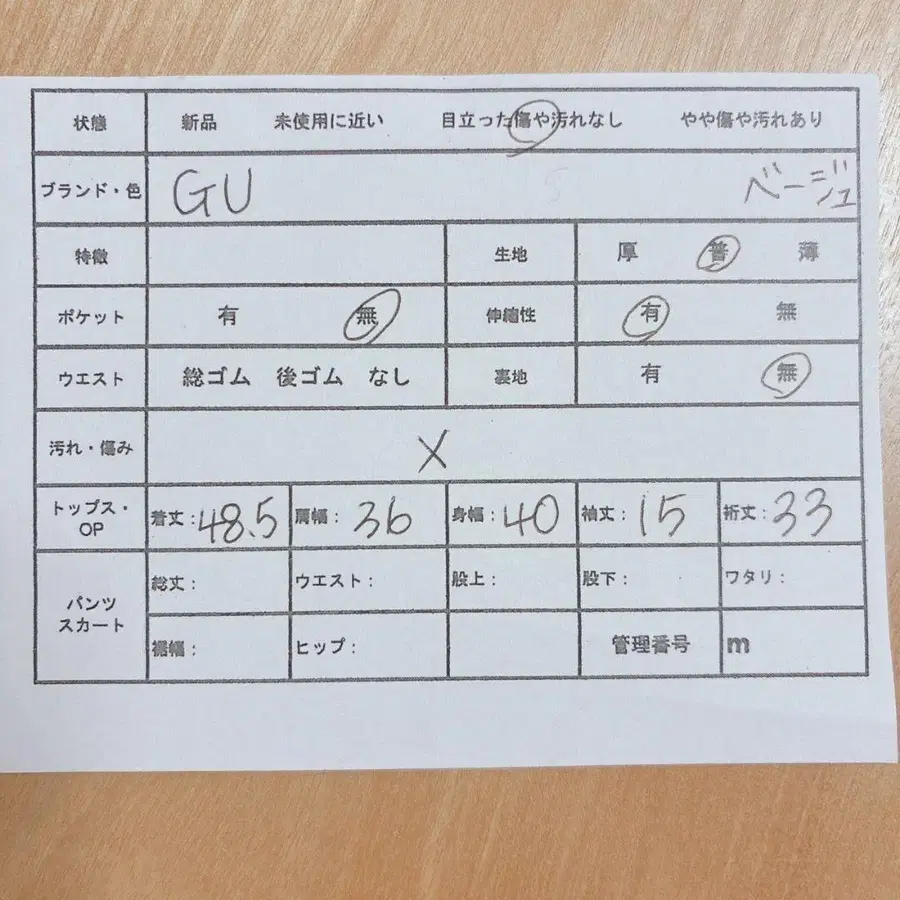 状態 新品 未使用に近い 目立った傷や汚れなし やや傷や汚れあり
ブランド・色 GU ベージュ
特徴 生地 厚 普 薄
ポケット 有 無 伸縮性 有 無
ウエスト 総ゴム 後ゴム なし 裏地 有 無
汚れ・傷み X
トップス・OP 着丈:48.5 肩幅:36 身幅:40 袖丈:15 裄丈:33
パンツ スカート 総丈: ウエスト: 股上: 股下: ワタリ:
裾幅: ヒップ: 管理番号 m